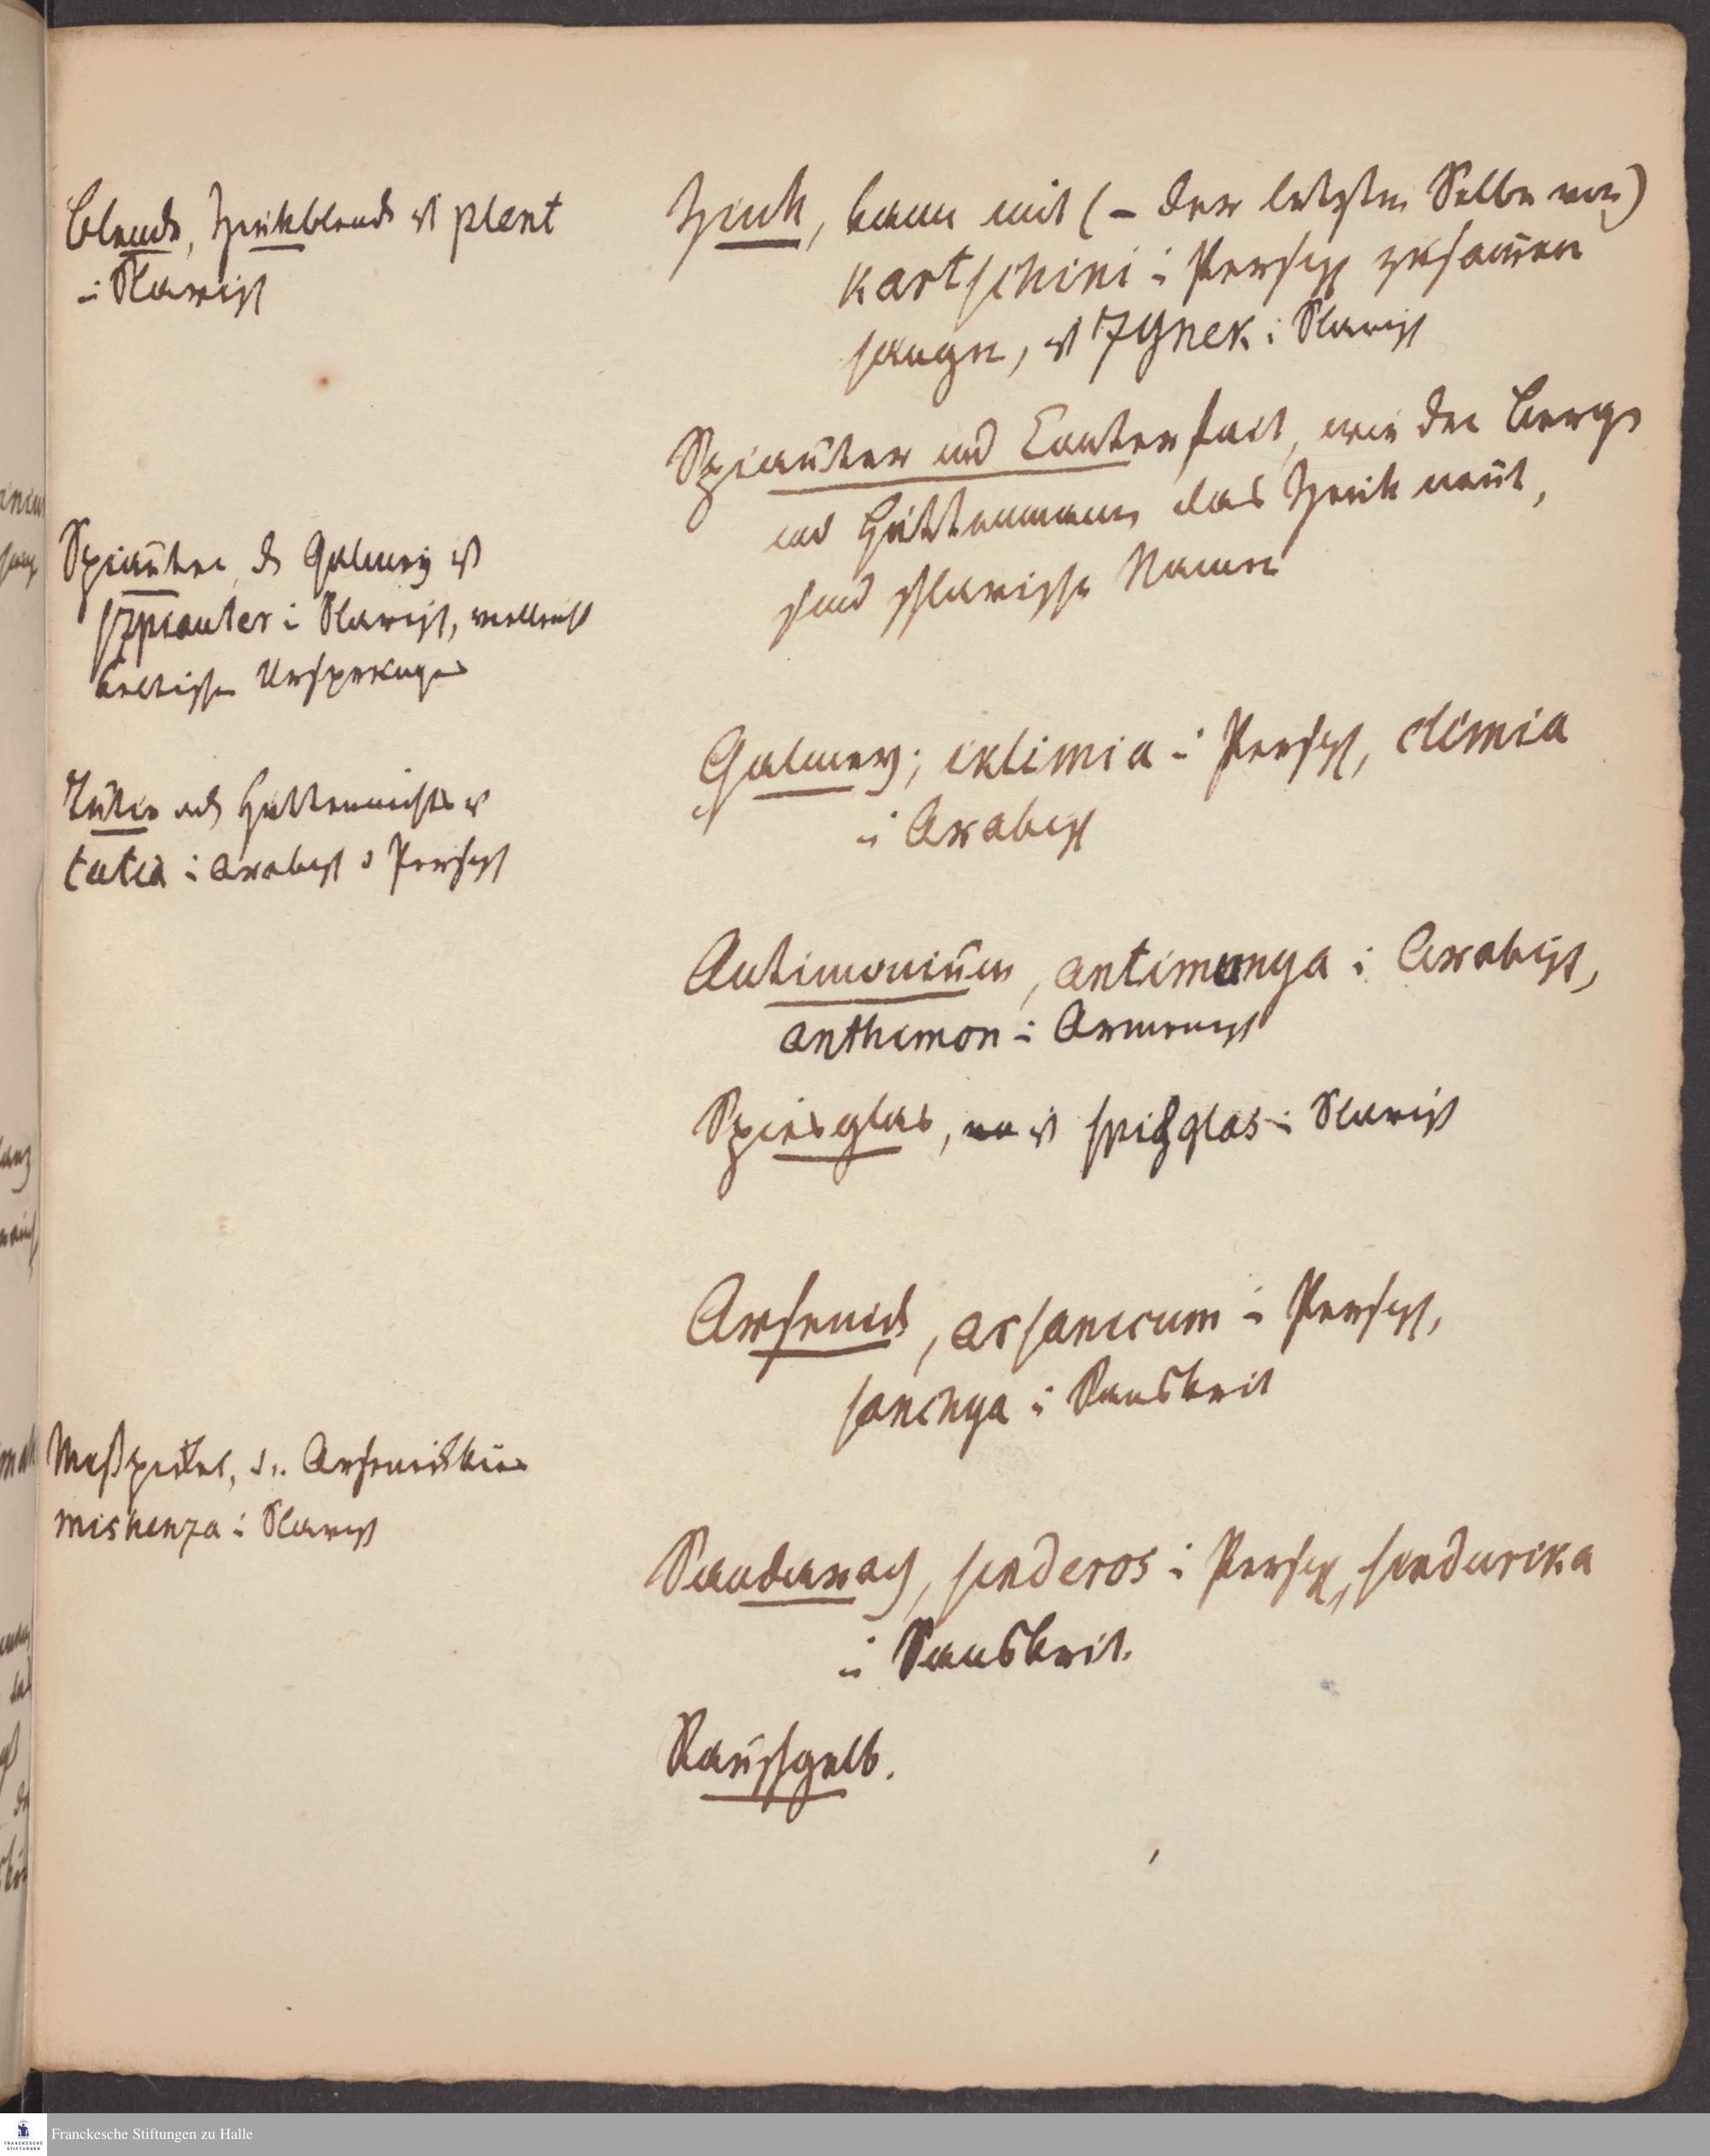 Blende, Zinkblende ist plent
in Slavisch
Spiauter, d. Galmey ist
szpiauter in Slavisch, vielleicht
keltischen Ursprunges
Tutia od. Hüttennichts ist
tutia in Arabisch u Persisch
Mißpickel, d. i. Arsenickkies
miskenza in Slavisch
Zink, kann mit (– der letzten Selbe von)
kartschini in Persisch zusammen
hangen, ist zynek in Slavisch
Spiauter und Conterfait, wie der Berg-
und Hüttenmann das Zink nennt,
sind sclavische Namen
Galmey; iklimia in Persisch, climia
in Arabisch
Antimonium, antimunya in Arabisch,
anthimon in Armenisch
Spiesglas, ist spisglas in Slavisch
Arsenick, arsanicum in Persisch,
sanchya in Sanskrit
Sandarach, senderos in Persisch, sindurika
in Sanskrit.
Rauschgelb.
Franckesche Stiftungen zu Halle
FRANCKESCHE
STIFTUNGEN